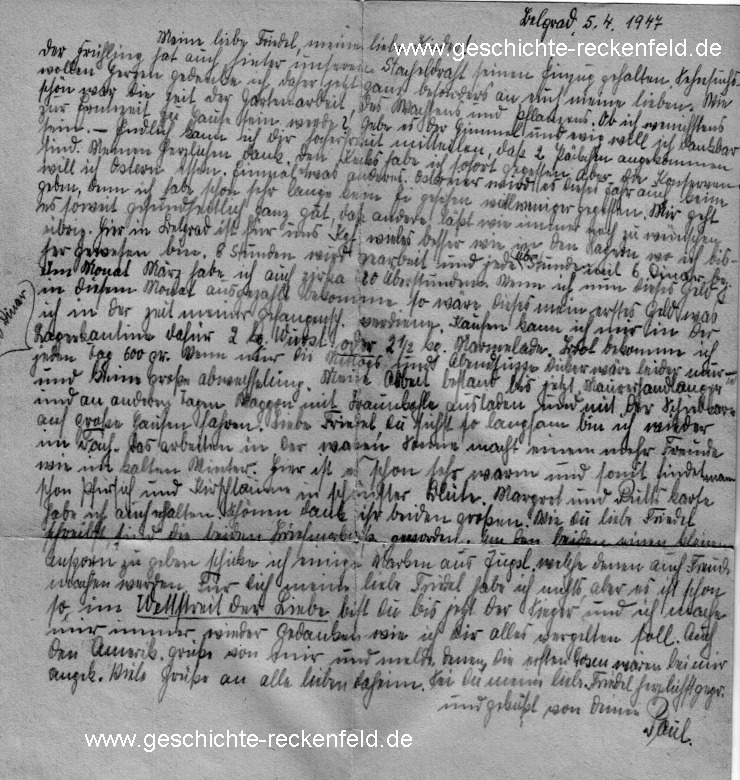 Belgrad, 5.4.1947
Meine liebe Friedel, meine lieben
www.geschichte-reckenfeld.de
Der Frühling hat auch hinter unserem Stacheldraht seinen Einzug gehalten. Sehnsuchts-
vollen Herzens gedenke ich daher jetzt ganz besonders an euch meine lieben. Wie
schön war die Zeit der Gartenarbeit, des Wachsens und Pflanzens. Ob ich wenigstens
zur Erntezeit zu Hause sein werde? Gebe es der Himmel und wie will ich dankbar
sein. – Endlich kann ich dir hocherfreut mitteilen, daß 2 Päckchen angekommen
sind. Meinen herzlichen Dank. Den Keks habe ich sofort gegessen aber die Konserven
will ich Ostern essen. Einmal etwas anderes. Ostereier wird es dieses Jahr auch keine
geben, denn ich habe schon sehr lange kein Ei gesehen viel weniger gegessen. Mir geht
es soweit gesundheitlich ganz gut, das andere läßt wie immer noch zu wünschen
übrig. Hier in Belgrad ist hier uns vieles besser wie in den Lagern wo ich bis-
her gewesen bin. 8 Stunden wird gearbeitet und jede Über Stunde mit 6 Dinar bez.
Im Monat März habe ich auch zirka 20 Überstunden. Wenn ich nun dieses Geld
in diesem Monat ausgezahlt bekomme so wäre dieses mein erstes Geld was
Dinar
ich in der Zeit meiner Gefangensch. verdiene. Kaufen kann ich nur in der
Lagerkantine dafür 2 kg. Wurst oder 2 1/2 kg. Marmelade. Brot bekomme ich
jeden Tag 600 gr. Wenn nur die Mittags und Abendsuppe dicker wäre leider nur
und keine große Abwechselung. Meine Arbeit bestand bis jetzt Maurerhandlanger
und an anderen Tagen Waggon mit Braunkohle ausladen und mit der Schiebkarre
auf große Haufen fahren. Liebe Friedel du siehst so langsam bin ich wieder
im Fach. Das arbeiten in der warmen Sonne macht einem mehr Freude
wie im kalten Winter. Hier ist es schon sehr warm und somit findet man
schon Pfirsich und Kirschbäume in schönster Blüte. Margret und Karte
habe ich auch erhalten schönen Dank ihr beiden großen. Wie du liebe Friedel
schreibst, sind die beiden geworden. Um den beiden einen kleinen
Ansporn zu geben schicke ich einige Marken aus Jugosl. welche denen auch Freude
machen werden. Für dich meine liebe Friedel habe ich nichts aber es ist schon
so, im Wettstreit der Liebe bist du bis jetzt der Sieger und ich mache
mir immer wieder Gedanken wie ich dir alles vergelten soll. Auch
den Amerik. Grüße von mir und melde denen, die ersten waren bei mir
angek. Viele Grüße an alle lieben daheim. Sei du meine liebe Friedel herzlichst gegr.
und geküßt von deinem
Paul.
www.geschichte-reckenfeld.de